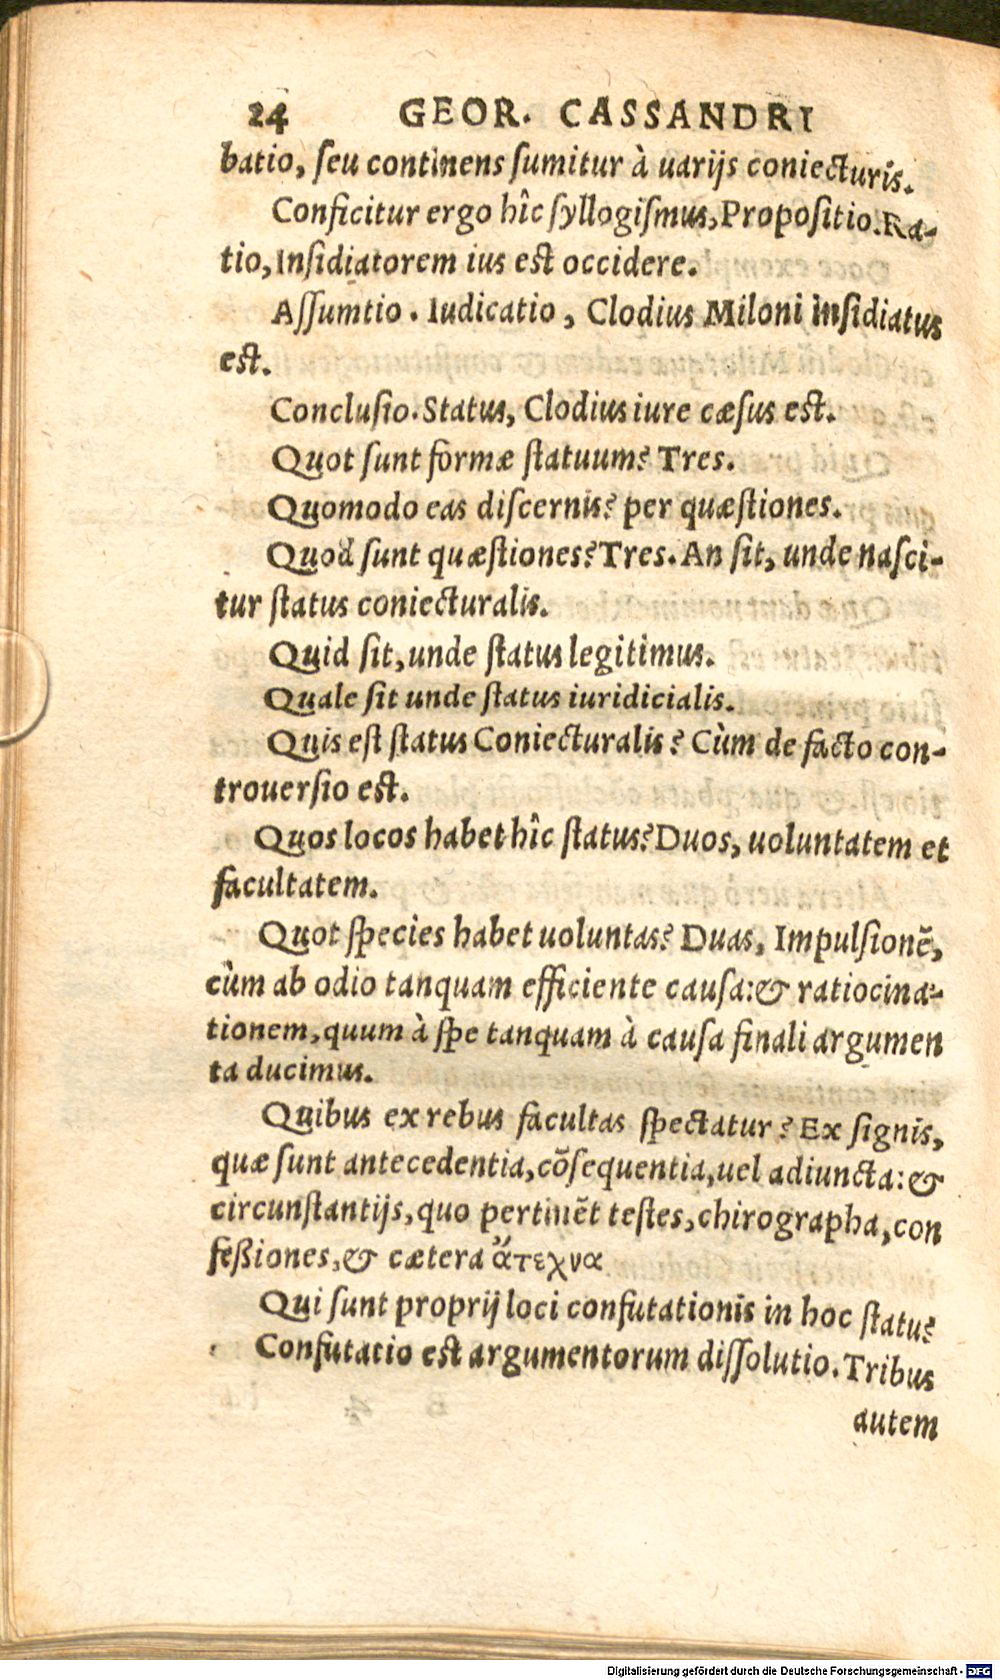 24 GEOR. CASSANDRI
batio, ſeu continens ſumitur à uarijs coniecturis.
Conficitur ergo hîc ſyllogiſmus, Propoſitio. Ra-
tio, Inſidiatorem ius est occidere.
Aſſumtio. Iudicatio, Clodius Miloni inſidiatus
est.
Concluſio. Status, Clodius iure cæſus est.
Quot ſunt formæ ſtatuum? Tres.
Quomodo eas diſcernis? per quæſtiones.
Quod ſunt quæſtiones? Tres. An ſit, unde naſci-
tur ſtatus coniecturalis.
Quid ſit, unde ſtatus legitimus.
Quale ſit unde ſtatus iuridicialis.
Quis eſt ſtatus Coniecturalis? Cùm de facto con-
trouerſio est.
Quos locos habet hîc ſtatus? Duos, uoluntatem et
facultatem.
Quot ſpecies habet uoluntas? Duas, Impulſionẽ,
cùm ab odio tanquam efficiente cauſa: & ratiocina-
tionem, quum à ſpe tanquam à cauſa finali argumen
ta ducimus.
Quibus ex rebus facultas ſpectatur? Ex ſignis,
quæ ſunt antecedentia, cõſequentia, uel adiuncta: &
circunſtantijs, quo pertinẽt teſtes, chirographa, con
feßiones, & cætera ἄτεχνα
Qui ſunt proprij loci confutationis in hoc ſtatu?
Confutatio est argumentorum diſſolutio. Tribus
autem
Digitalisierung gefördert durch die Deutsche Forschungsgemeinschaft - DFG